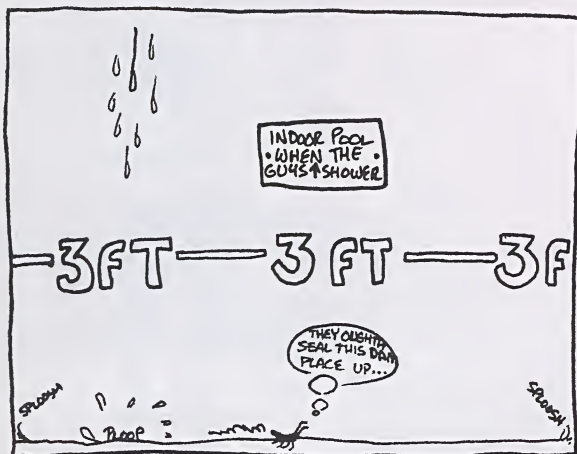 INDOOR POOL
• WHEN THE •
GUYS ↑ SHOWER
3FT — 3 FT — 3F
THEY OUGHTA
SEAL THIS DAM
PLACE UP...
SPLOOSH
PLOOP
SPLOOSH